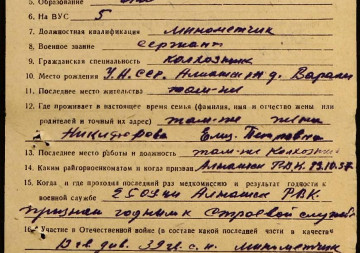 5. Образование
6. На ВУС 5
7. Должностная квалификация минометчик
8. Военное звание сержант
9. Гражданская специальность колхозник
10. Место рождения У.А.ССР. Алнашск д.
11. Последнее место жительства там-же
12. Где проживает в настоящее время семья (фамилия, имя и отчество жены или
родителей и точный их адрес) там-же жена
Никифорова Елиз. Петровна
13. Последнее место работы и должность там-же Колхозник
14. Каким райгорвоенкоматом и когда призван Алнашск РВК.
15. Когда и где проходил последний раз медкомиссию и результат годности к
военной службе Алнашск РВК
признан годным к строевой службе
16. Участие в Отечественной войне (в составе какой последней части в качестве
13 гв. див. 39 гв. с. п. минометчик